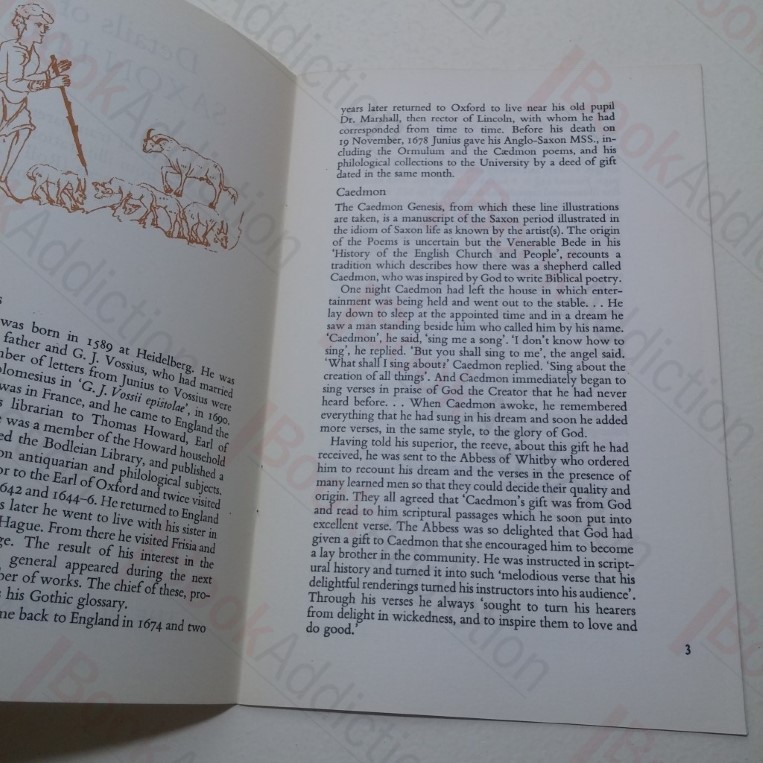 Details of
SAXON
s
was born in 1589 at Heidelberg. He was
father and G. J. Vossius, who had married
ber of letters from Junius to Vossius were
olomesius in 'G. J. Vossii epistolae', in 1690.
was in France, and he came to England the
s librarian to Thomas Howard, Earl of
e was a member of the Howard household
ed the Bodleian Library, and published a
on antiquarian and philological subjects.
or to the Earl of Oxford and twice visited
642 and 1644-6. He returned to England
s later he went to live with his sister in
Hague. From there he visited Frisia and
ge. The result of his interest in the
general appeared during the next
ber of works. The chief of these, pro-
s his Gothic glossary.
me back to England in 1674 and two
years later returned to Oxford to live near his old pupil
Dr. Marshall, then rector of Lincoln, with whom he had
corresponded from time to time. Before his death on
19 November, 1678 Junius gave his Anglo-Saxon MSS., in-
cluding the Ormulum and the Cædmon poems, and his
philological collections to the University by a deed of gift
dated in the same month.
Caedmon
The Caedmon Genesis, from which these line illustrations
are taken, is a manuscript of the Saxon period illustrated in
the idiom of Saxon life as known by the artist(s). The origin
of the Poems is uncertain but the Venerable Bede in his
'History of the English Church and People', recounts a
tradition which describes how there was a shepherd called
Caedmon, who was inspired by God to write Biblical poetry.
One night Caedmon had left the house in which enter-
tainment was being held and went out to the stable. . . He
lay down to sleep at the appointed time and in a dream he
saw a man standing beside him who called him by his name.
'Caedmon', he said, 'sing me a song'. 'I don't know how to
sing', he replied. 'But you shall sing to me', the angel said.
'What shall I sing about?' Caedmon replied. 'Sing about the
creation of all things'. And Caedmon immediately began to
sing verses in praise of God the Creator that he had never
heard before. . . When Caedmon awoke, he remembered
everything that he had sung in his dream and soon he added
more verses, in the same style, to the glory of God.
Having told his superior, the reeve, about this gift he had
received, he was sent to the Abbess of Whitby who ordered
him to recount his dream and the verses in the presence of
many learned men so that they could decide their quality and
origin. They all agreed that 'Caedmon's gift was from God
and read to him scriptural passages which he soon put into
excellent verse. The Abbess was so delighted that God had
given a gift to Caedmon that she encouraged him to become
a lay brother in the community. He was instructed in script-
ural history and turned it into such 'melodious verse that his
delightful renderings turned his instructors into his audience'.
Through his verses he always 'sought to turn his hearers
from delight in wickedness, and to inspire them to love and
do good.'
3
BookAddiction